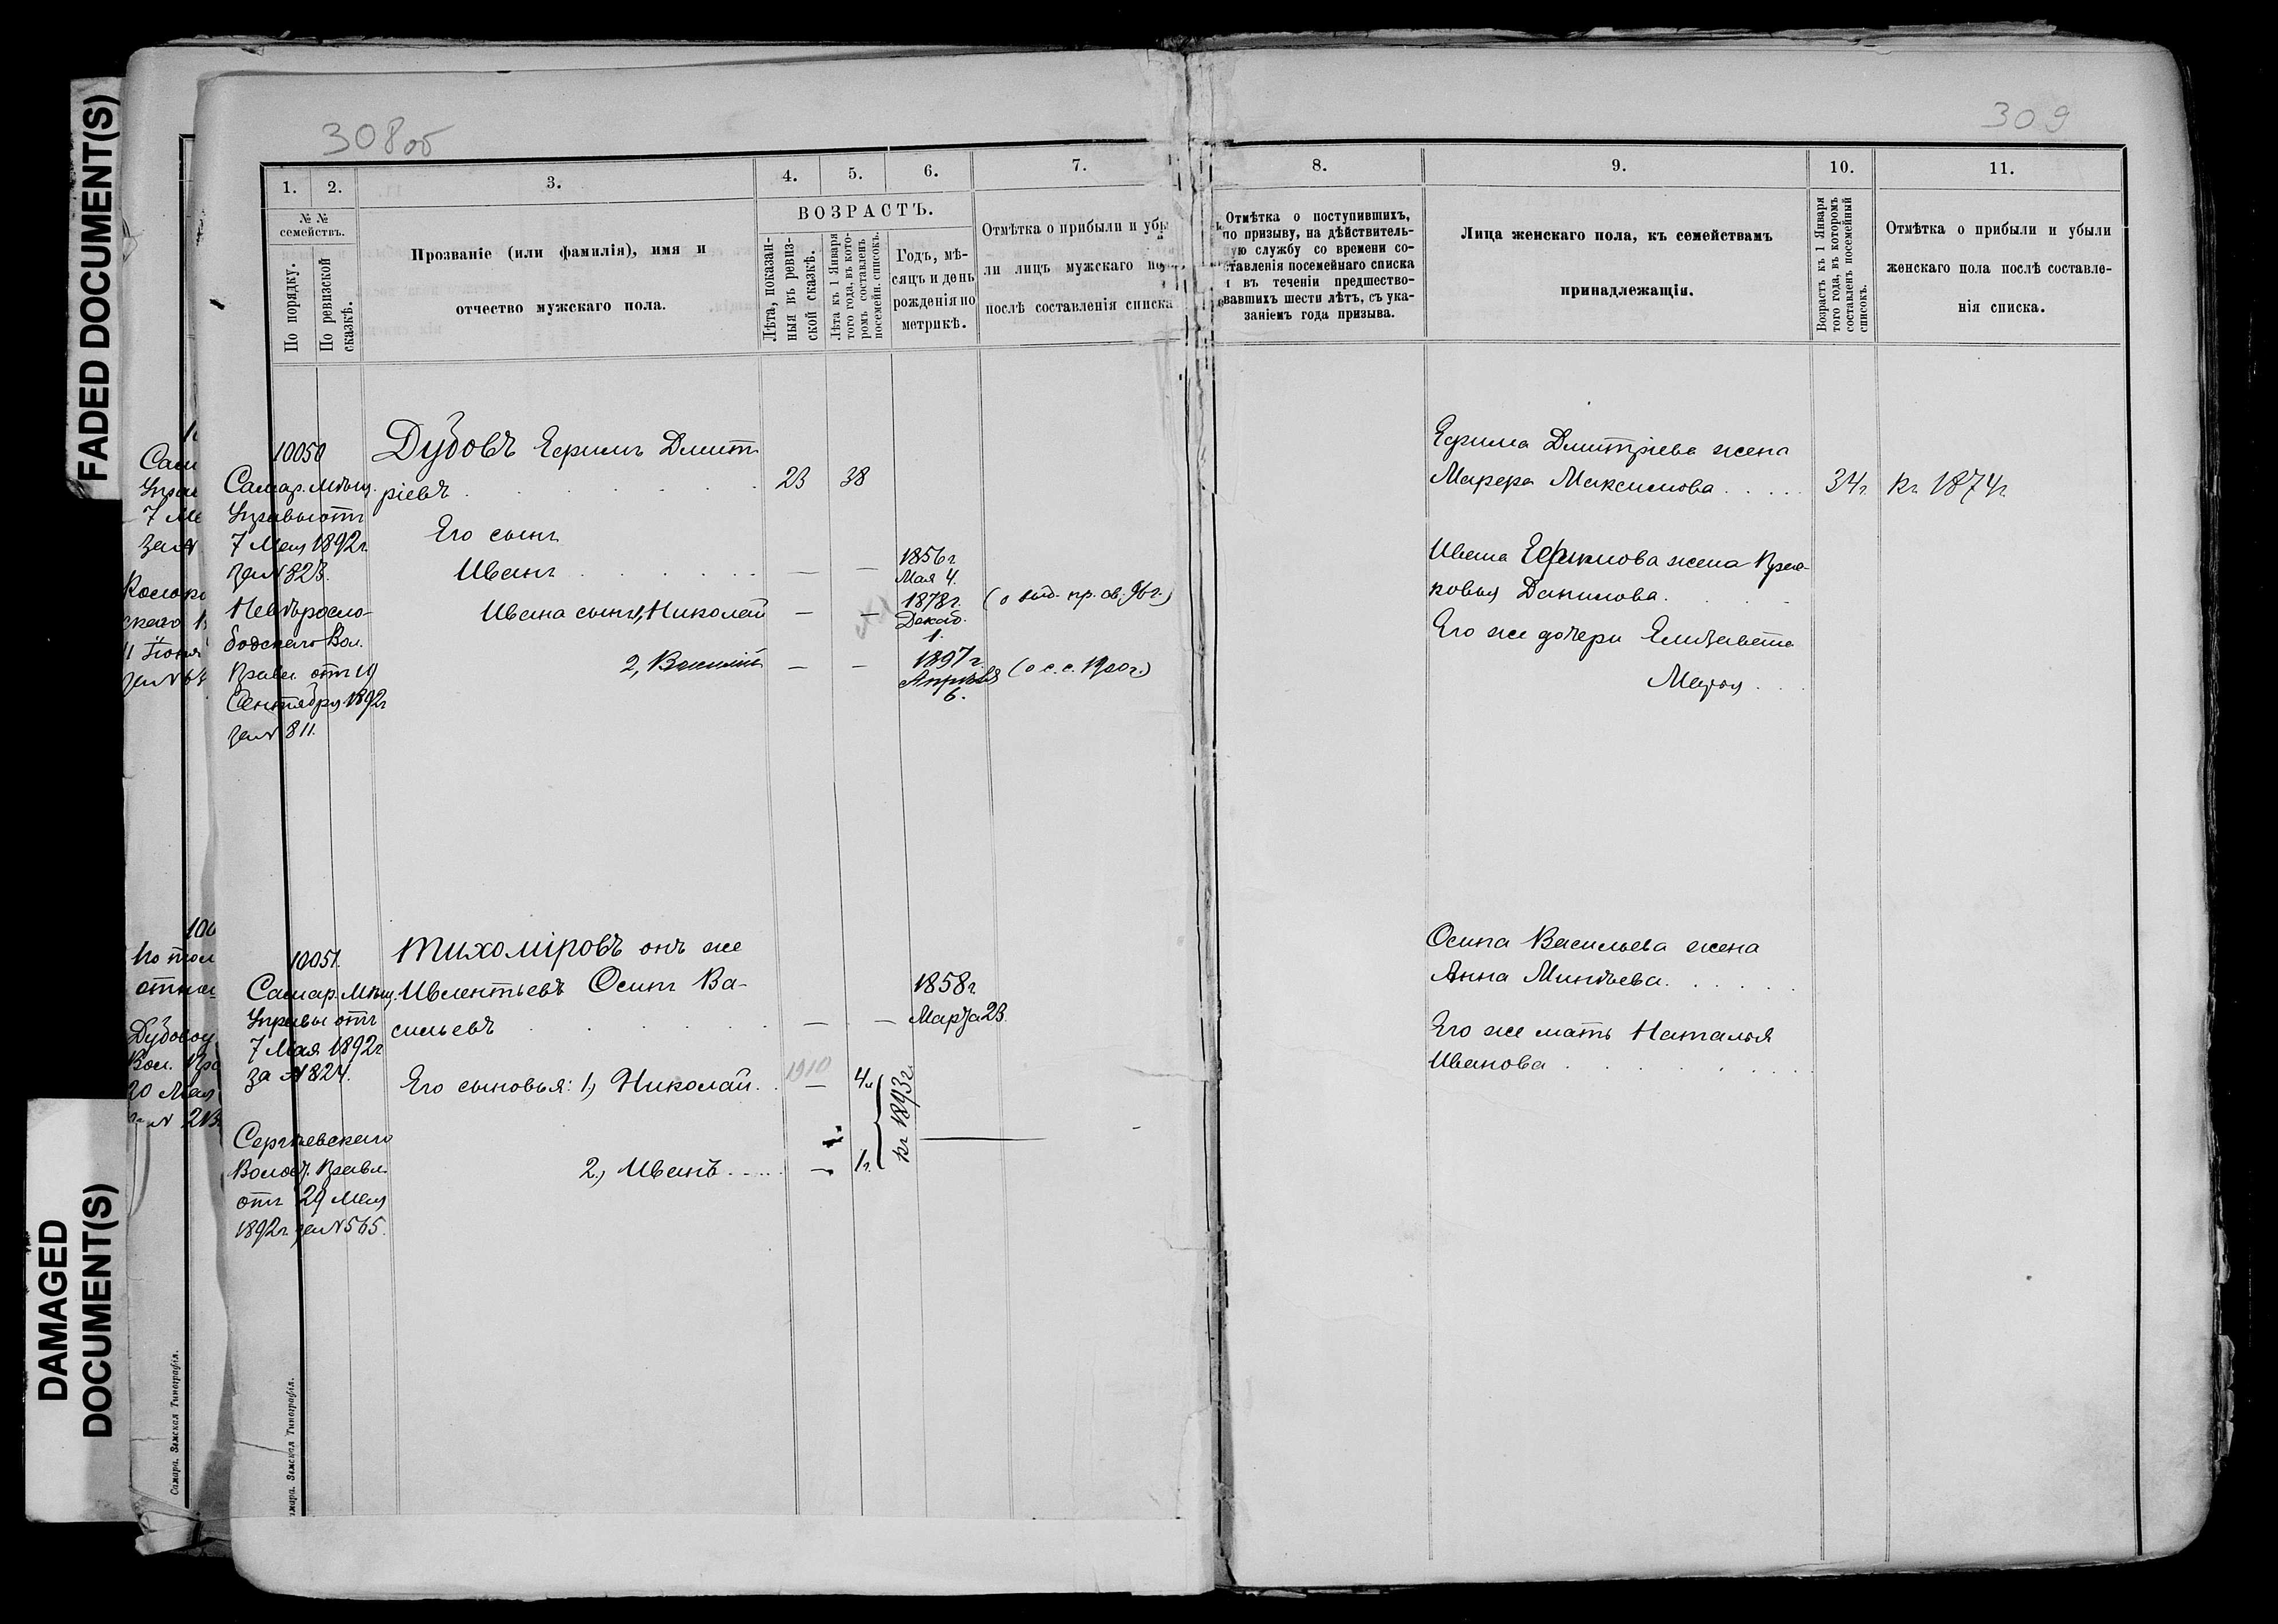 FADED DOCUMENT(S)
DAMAGED
DOCUMENT(S)
308об
309
1.
2.
3.
4.
5.
6.
7.
8.
9.
10.
11.
№ №
семействъ.
По порядку.
По ревизской
сказкѣ.
Прозваніе (или фамилія), имя и
отчество мужскаго пола.
ВОЗРАСТЪ.
Лѣта, показан-
ныя въ ревиз-
ской сказкѣ.
Лѣта къ 1 Января
того года, въ кото-
ромъ составленъ
посемейн. списокъ.
Годъ, мѣ-
сяцъ и день
рожденія по
метрикѣ.
Отмѣтка о прибыли и убы
ли лицъ мужскаго по
послѣ составленія списка
Отмѣтка о поступившихъ,
по призыву, на дѣйствитель-
ную службу со времени со-
ставленія посемейнаго списка
и въ теченіи предшество-
вавшихъ шести лѣтъ, съ ука-
заніемъ года призыва.
Лица женскаго пола, къ семействамъ
принадлежащія.
Возрастъ къ 1 Января
того года, въ которомъ
составленъ посемейный
списокъ.
Отмѣтка о прибыли и убыли
женскаго пола послѣ составле-
нія списка.
10050
Самар. Мѣщ.
Управы отъ
7 Мая 1892г.
за № 823.
бодскаго Вол.
Правл. отъ 19
Сентября 1892г
за № 811.
Дубовъ Ефимъ Дмит-
ріевъ . . . . . . 23 38
Его сынъ
Иванъ . . . . . — — 1856г. Мая 4.
Ивана сынъ 1, Николай — — 1878г. Декаб. 1. (о выд. пр. св. 96г.)
2, Василій — — 1897г. Апрѣля 6. (о с. с. 1900г.)
Ефима Дмитріева жена
Марфа Максимова . . . . . 34г. къ 1874г.
Ивана Ефимова жена Прас-
ковья Данилова. . . .
Его же дочери Елизавета
Марья . . .
10051.
Самар. Мѣщ.
Управы отъ
7 Мая 1892г
за № 824.
Сергіевскаго
Волост. Правл.
отъ 29 Мая
1892г. за № 565.
Тихоміровъ онъ же
Ивлентьевъ Осипъ Ва-
сильевъ . . . . . — — 1858г. Марта 23.
1910
Его сыновья: 1, Николай. . — 4. къ 1893г.
2, Иванъ . . . . . — 1г.
Осипа Васильева жена
Анна Минѣева. . . . . .
Его же мать Наталья
Иванова . . . . . .
7 Ме
11 Іюня
Дубовой
20 Мая
Самара. Земская Типографія.
мара. Земская Типографія.